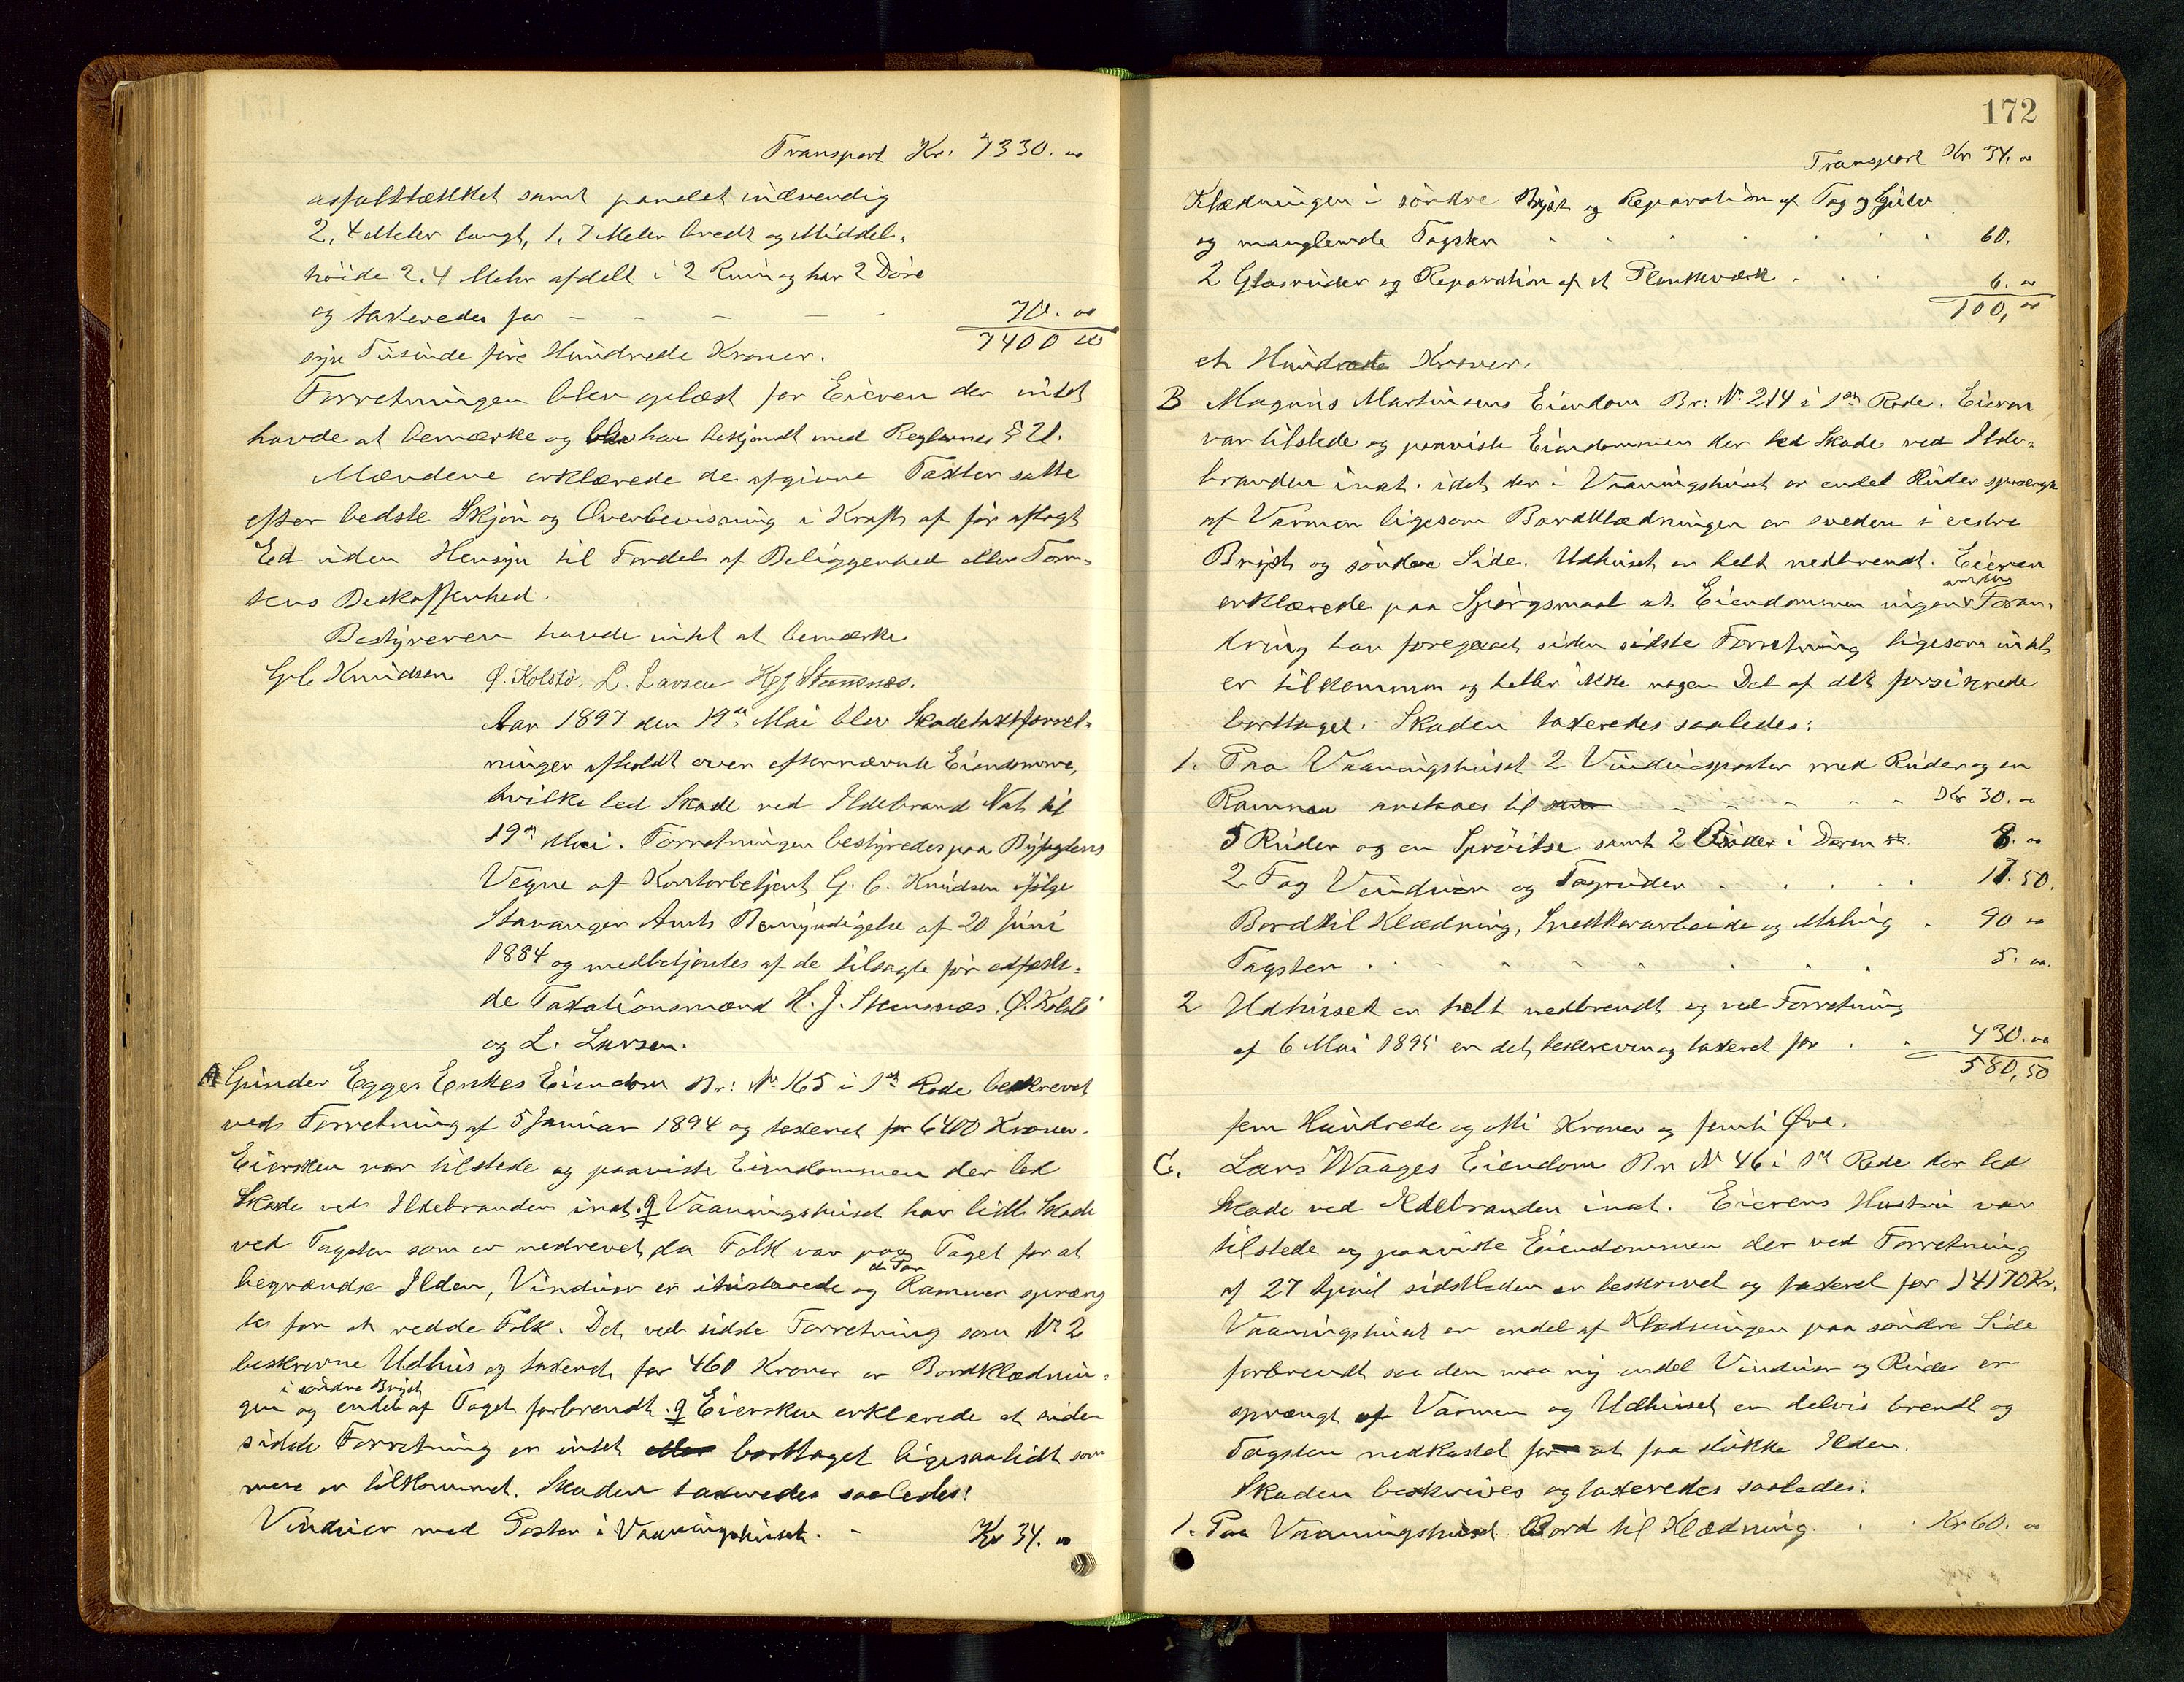 Transport Kr. 7330. 00
asfalttækket samt panelet indvendig
2,4 Meter langt, 1,7 Meter bredt og Middel-
høide 2.4 Meter afdelt i 2 Rum og har 2 Døre
og taxeredes for - - - - - 70. 00
7400 00
syv Tusinde fire Hundrede Kroner.
Forretningen blev oplæst for Eieren der intet
havde at bemærke og blev han bekjendt med Reglernes § 21.
Mændene erklærede de afgivne Taxter satte
efter bedste Skjøn og Overbevisning i Kraft af før aflagt
Ed uden Hensyn til Fordel af Beliggenhed eller Tom-
tens Beskaffenhed.
Bestyreren havde intet at bemærke
G. C. Knudsen Ø. Kolstø. L. Larsen H J Stensnæs.
Aar 1897 den 19de Mai blev Skadetaxtforret-
ninger afholdt over efternævnte Eiendomme,
hvilke led Skade ved Ildebrand Nat til
19de Mai. Forretningen bestyredes paa Byfogdens
Vegne af Kontorbetjent G. C. Knudsen ifølge
Stavanger Amts Bemyndigelse af 20 Juni
1884 og medbetjentes af de tilsagte før edfæste-
de Taxationsmænd H. J. Stensnæs. Ø. Kolstø
og L. Larsen.
A Gunder Egges Enkes Eiendom Br: No 165 i 1ste Rode beskrevet
ved Forretning af 5 Januar 1894 og taxeret for 6400 Kroner.
Eiersken var tilstede og paaviste Eiendommen der led
Skade ved Ildebranden inat. Vaaningshuset har lidt Skade
ved Tagsten som er nedrevet, da Folk var paa Taget for at
begrændse Ilden, Vinduer er ituslaaede og Rammer spræng
tes for at redde Folk. Det ved sidste Forretning som No 2
beskrevne Udhus og taxeret for 460 Kroner er Bordklædnin-
i søndre Bryst
gen og endel af Taget forbrendt. Eiersken erklærede at siden
sidste Forretning er intet eller borttaget ligesaalidt som
mere er tilkommet. Skaden taxeredes saaledes:
Vinduer med Poster i Vaaningshuset. - Kr 34. 00
172
Transport Kr 34. 00
Klædningen i søndre Bryst og Reparation af Tag og Gulv
og manglende Tagsten 60.
2 Glasruder og Reparation af et Plankeværk 6. 00
100, 00
et Hundrede Kroner.
B Magnus Martinsens Eiendom Br: No 214 i 1ste Rode. Eieren
var tilstede og paaviste Eiendommen der led Skade ved Ilde-
branden inat. idet der i Vaaningshuset er endel Ruder sprængt
af Varmen ligesom Bordklædningen er sveden i vestre
Bryst og søndre Side. Udhuset er helt nedbrendt. Eieren
erklærede paa Spørgsmaal at Eiendommen ingen Foran-
dring har foregaaet siden sidste Forretning ligesom intet
er tilkommen og heller ikke nogen Del af det forsikrede
borttaget. Skaden taxeredes saaledes:
1. Paa Vaaningshuset 2 Vinduesposter med Ruder og en
Rammen anslaaes til Kr 30. 00
5 Ruder og en Sprøitse samt 2 Ruder i Døren 8. 00
2 Fag Vinduer og Tagruder 17. 50.
Bord til Klædning, Snekkerarbeide og Maling 90 00
Tagsten 5. 00.
2 Udhuset er helt nedbrendt og ved Forretning
af 6 Mai 1895 er det beskreven og taxeret for 430. 00
580, 50
fem Hundrede og otti Kroner og femti Øre.
C. Lars Waages Eiendom Br No 46 i 1ste Rode der led
Skade ved Ildebranden inat. Eierens Hustru var
tilstede og paaviste Eiendommen der ved Forretning
af 27 April sidstleden er beskrevet og taxeret for 14170 Kr.
Vaaningshuset er endel af Klædningen paa søndre Side
forbrendt saa den maa ny endel Vinduer og Ruder er
sprængt af Varmen og Udhuset er delvis brendt og
Tagsten nedkastet for at faa slukke Ilden.
Skaden beskrives og taxeredes saaledes:
1. Paa Vaaningshuset Bord til Klædning. Kr 60. 00